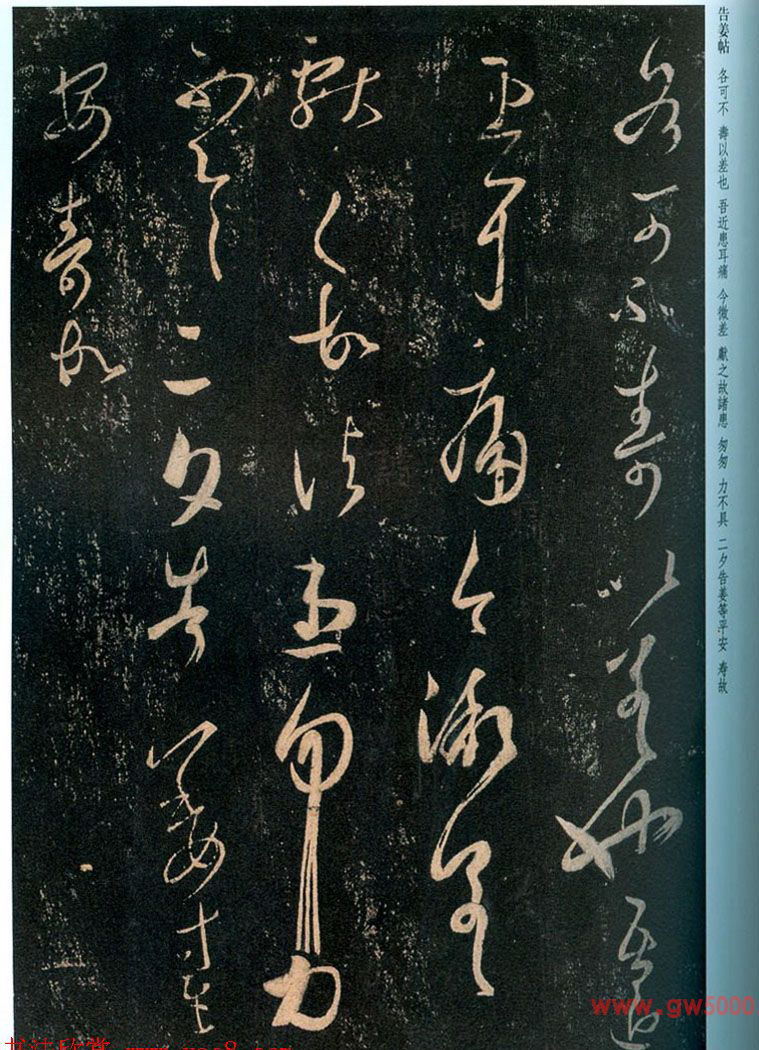 告姜帖 各可不 壽以差也 吾近患耳痛 今微差 獻之故諸患 匆匆 力不具 二夕告姜等平安 寿故
各可不壽以差也吾近
患耳痛今微差
獻之故諸患匆匆力
不具二夕告姜等平
安壽故
www.gw5000.
书法欣赏 www.yac8.com